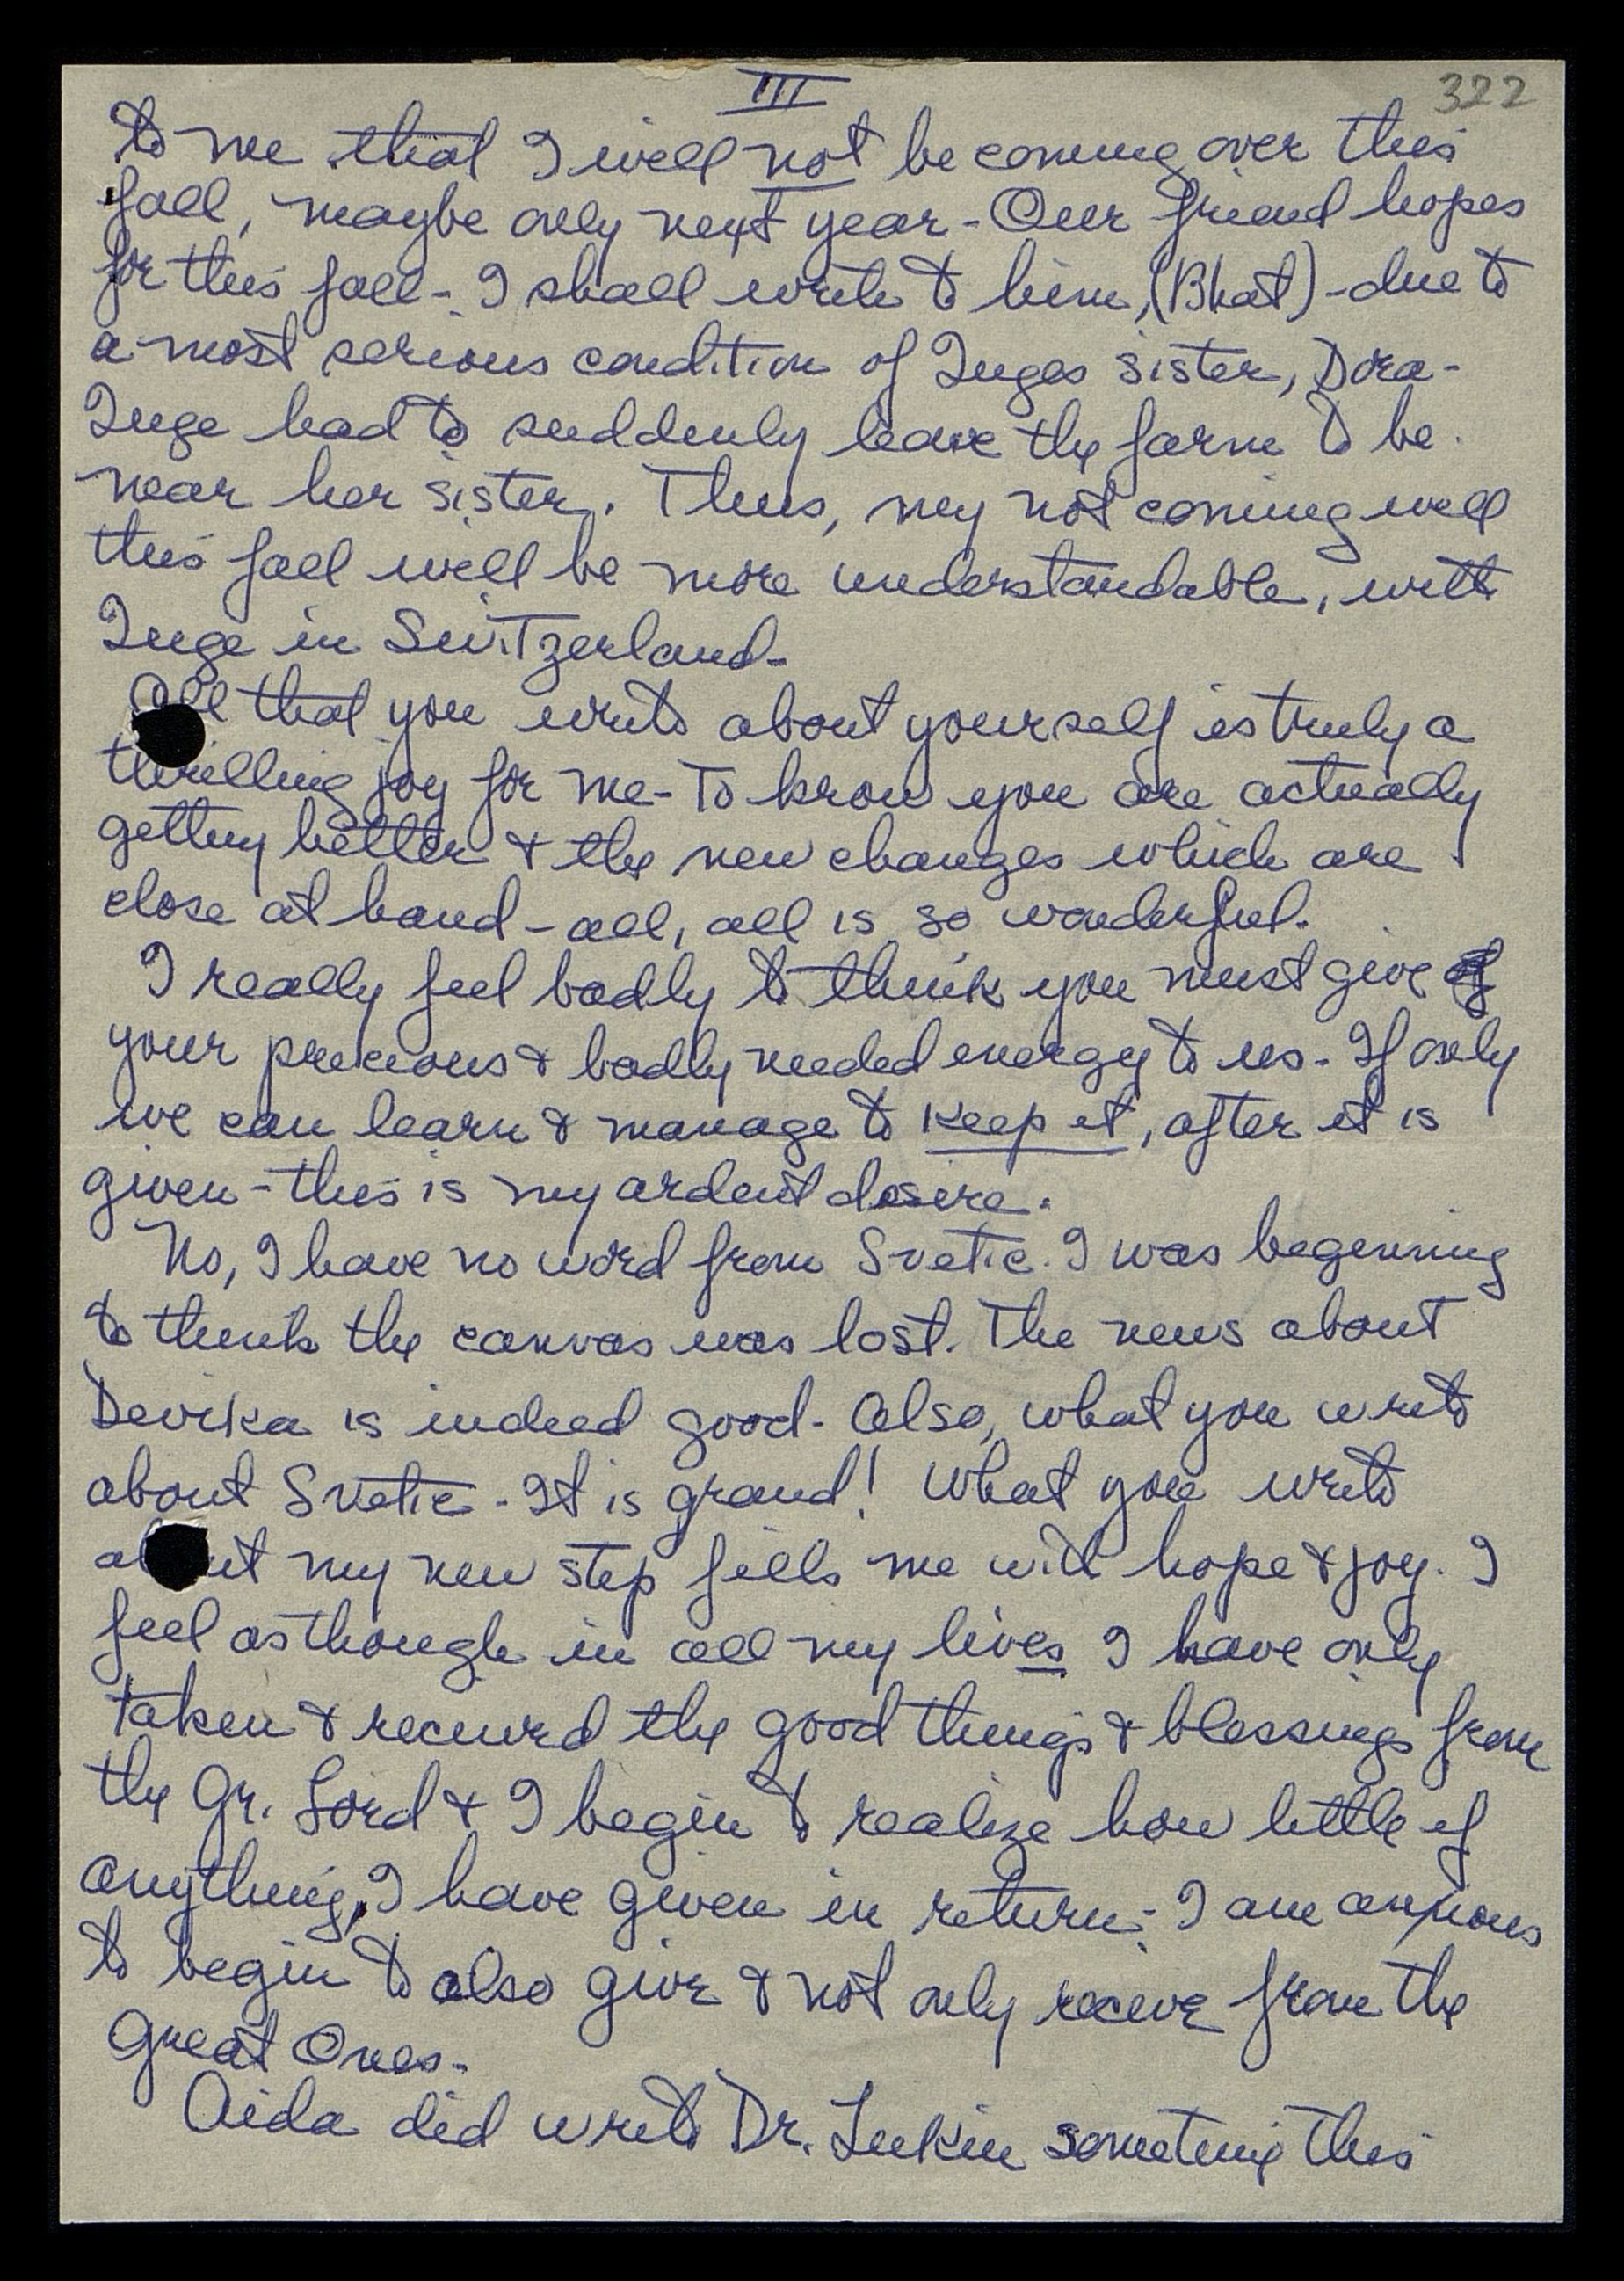 III
322
to me that I will not be coming over this
fall, maybe only next year - Our friend hopes
for this fall - I shall write to him, (Bhat) - due to
a most serious condition of Inges sister, Dora -
Inge had to suddenly leave the farm to be
near her sister. Thus, my not coming well
this fall will be more understandable, with
Inge in Switzerland -
All that you write about yourself is truly a
thrilling joy for me - To know you are actually
getting better & the new changes which are
close at hand - all, all is so wonderful.
I really feel badly to think you must give
your precious & badly needed energy to us - If only
we can learn & manage to keep it, after it is
given - this is my ardent desire.
No, I have no word from Svetic. I was beginning
to think the canvas was lost. The news about
Devika is indeed good - Also, what you write
about Svetic - It is grand! What you write
about my new step fills me with hope & joy. I
feel as though in all my lives I have only
taken & received the good things & blessings from
the Gr. Lord & I begin to realize how little if
anything, I have given in return - I am anxious
to begin to also give & not only receive from the
Great Ones -
Aida did write Dr. Lukin sometime this